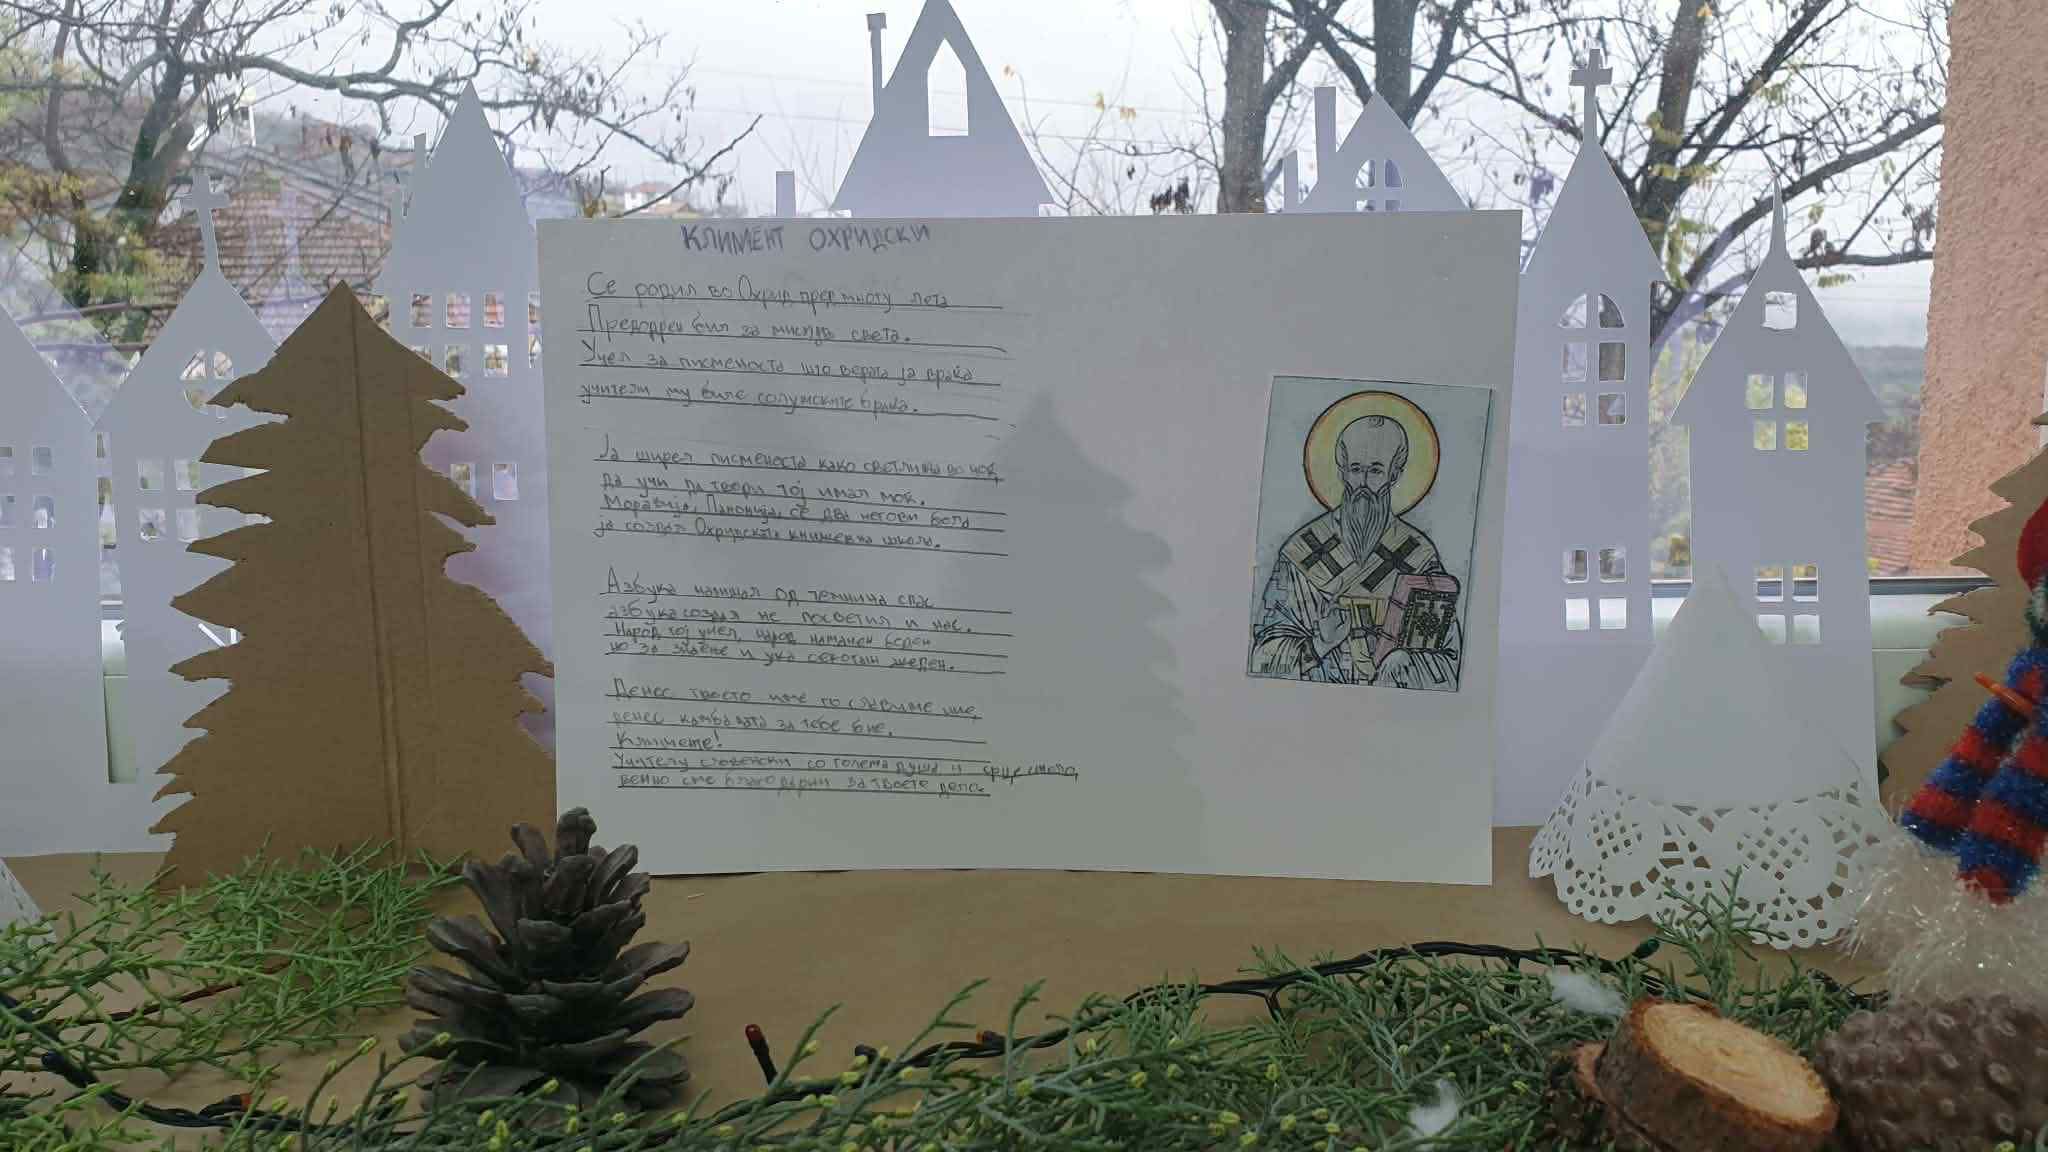 КЛИМЕНТ ОХРИДСКИ
Се родил во Охрид пред многу лета
Предодреен бил за мисија света.
Учел за писменоста што верата ја враќа
учители му биле солунските браќа.
Ја ширел писменоста како светлина во ноќ,
да учи да твори тој имал моќ.
Моравија, Панонија, се два негови бола
ја создал Охридската книжевна школа.
Азбука напишал од темнина спас
азбука создал не посветил и нас.
Народ тој учел, народ намачен верен
но за знаење и ука секогаш жеден.
Денес твоето име го славиме ние,
денес камбаната за тебе бие.
Клименте!
Учителу словенски со голема душа и срце
вечно сме благодарни за твоете дела